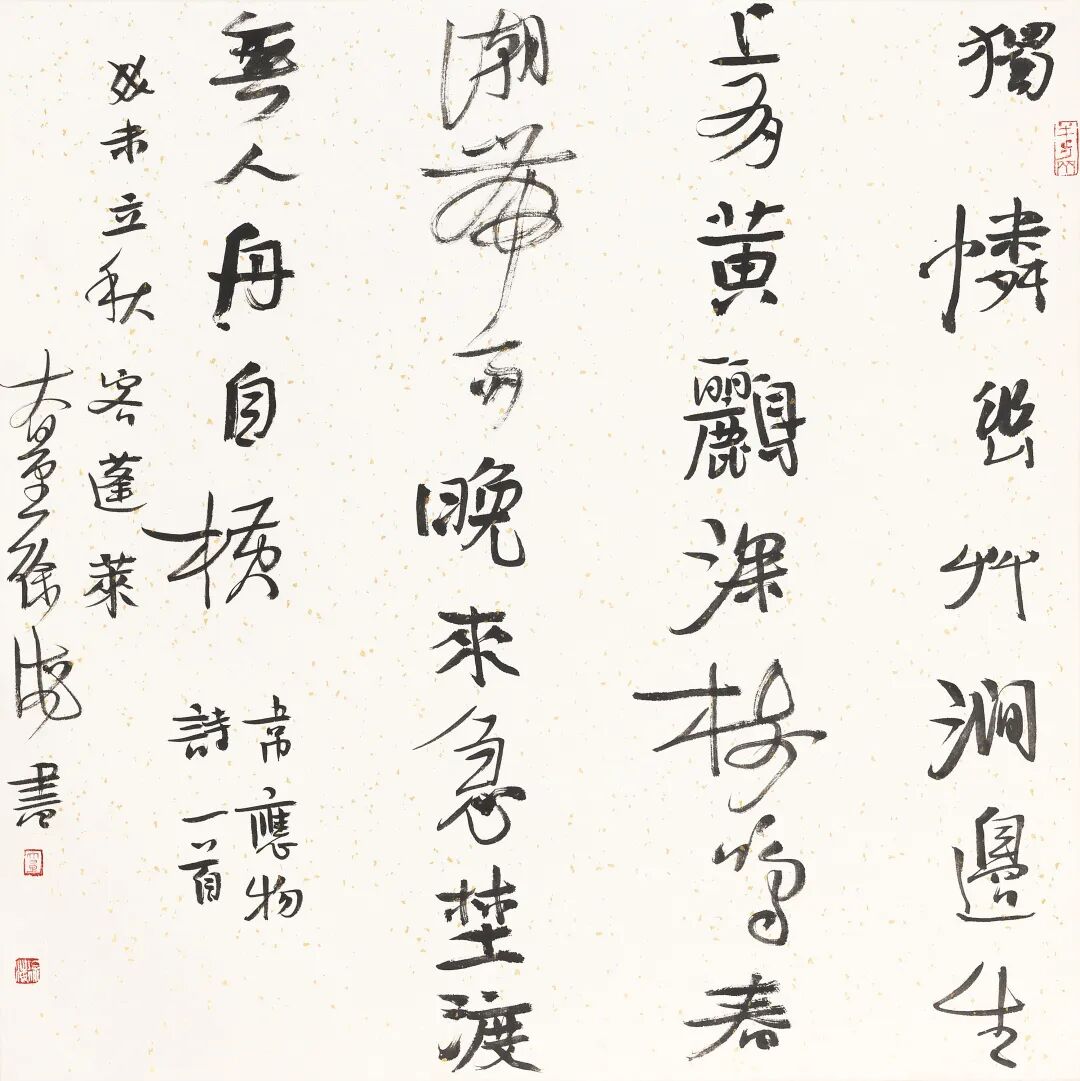 獨憐幽艸澗邊生
上有黃鸝深樹鳴春
潮帶雨晚來急埜渡
無人舟自橫
韋應物
詩一首
癸未立秋客蓬萊
大徐海書